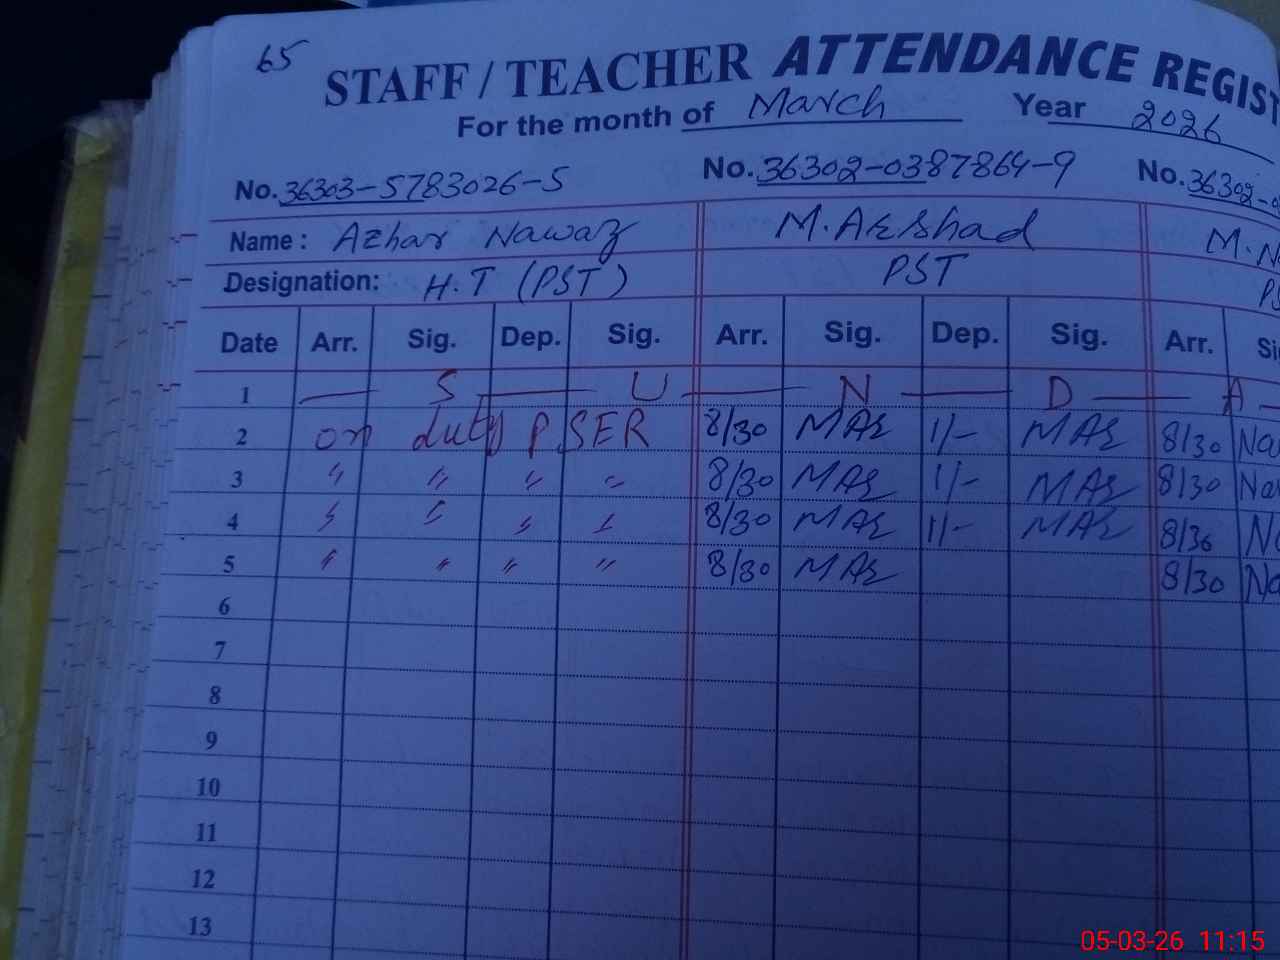 65
STAFF / TEACHER ATTENDANCE REGIST
For the month of March Year 2026
No. 36303-5783026-5 No. 36302-0387864-9 No. 36302-0
Name : Azhar Nawaz M. Arshad M. N
Designation: H.T (PST) PST PS
Date Arr. Sig. Dep. Sig. Arr. Sig. Dep. Sig. Arr. Si
1 — S — U — N — D — A —
2 on duty PSER 8/30 MAR 1/- MAR 8/30 Na
3 " " " " 8/30 MAR 1/- MAR 8/30 Na
4 " " " " 8/30 MAR 1/- MAR 8/30 Na
5 " " " " 8/30 MAR 8/30 Na
6
7
8
9
10
11
12
13
05-03-26 11:15